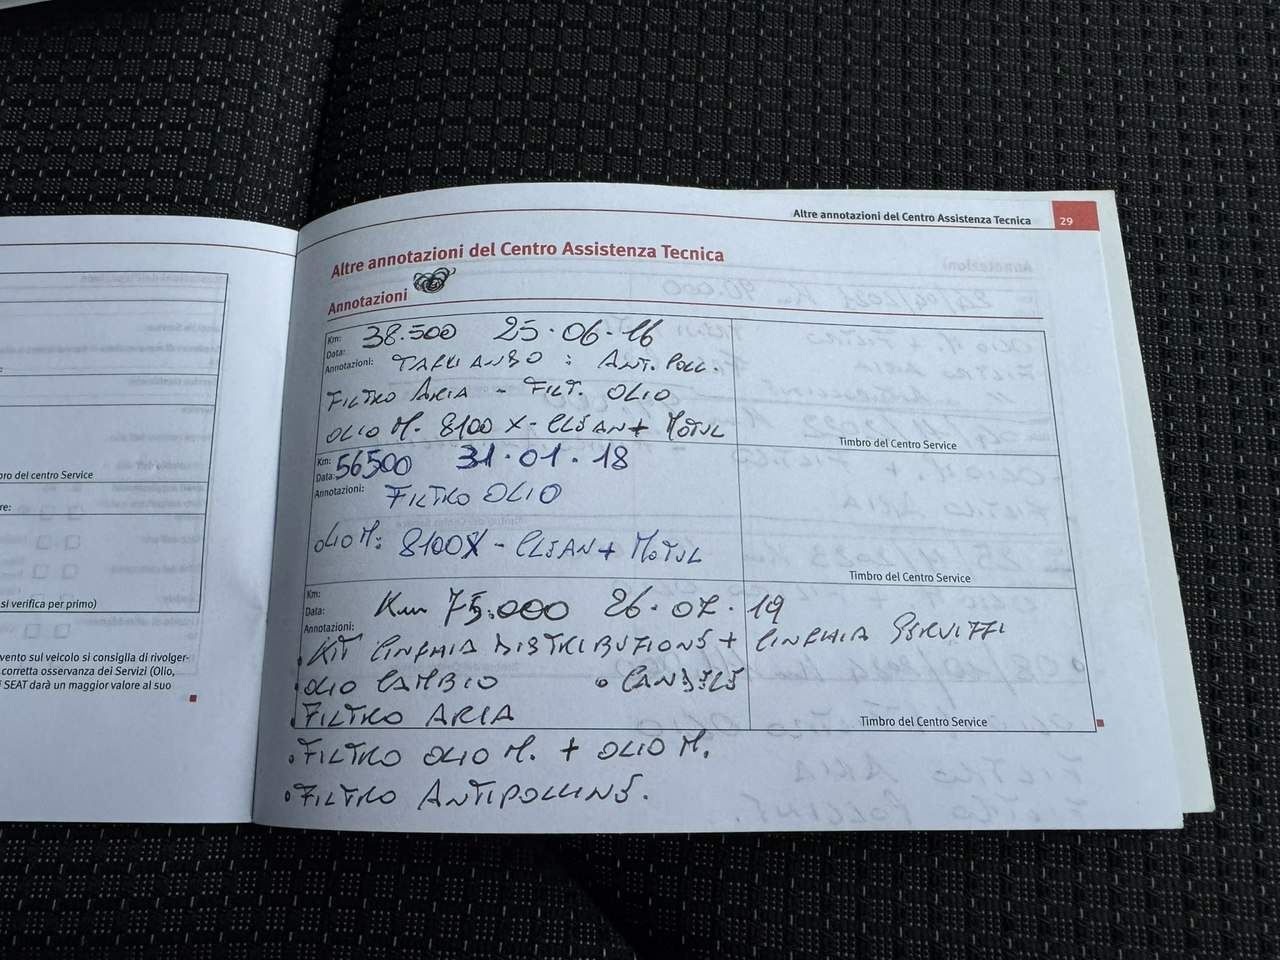 Altre annotazioni del Centro Assistenza Tecnica 29
Altre annotazioni del Centro Assistenza Tecnica
Annotazioni
Km: 38.500 25.06.16
Data:
Annotazioni: TAGLIANDO : ANT. POLL.
FILTRO ARIA - FILT. OLIO
OLIO M. 8100 X-CLEAN + MOTUL
Timbro del Centro Service
Km: 56500 31.01.18
Data:
Annotazioni: FILTRO OLIO
OLIO M: 8100X - CLEAN + MOTUL
Timbro del Centro Service
Km:
Data: Km 75.000 26.07.19
Annotazioni:
• KIT CINGHIA DISTRIBUZIONE + CINGHIA SERVIZI
• OLIO CAMBIO • CANDELE
• FILTRO ARIA
Timbro del Centro Service
• FILTRO OLIO M. + OLIO M.
• FILTRO ANTIPOLLINE.
bro del centro Service
re:
si verifica per primo)
vento sul veicolo si consiglia di rivolger-
corretta osservanza dei Servizi (Olio,
SEAT darà un maggior valore al suo